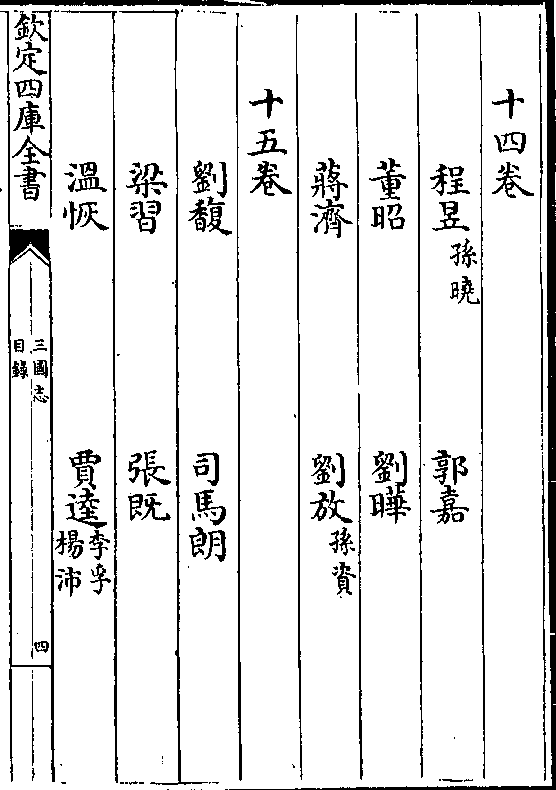 十四卷
程昱孫曉 郭嘉
董昭 劉曄
蔣濟 劉放孫資
十五卷
劉馥 司馬朗
梁習 張既
溫恢 賈逵李孚楊沛
欽定四庫全書
三國志
目錄
四